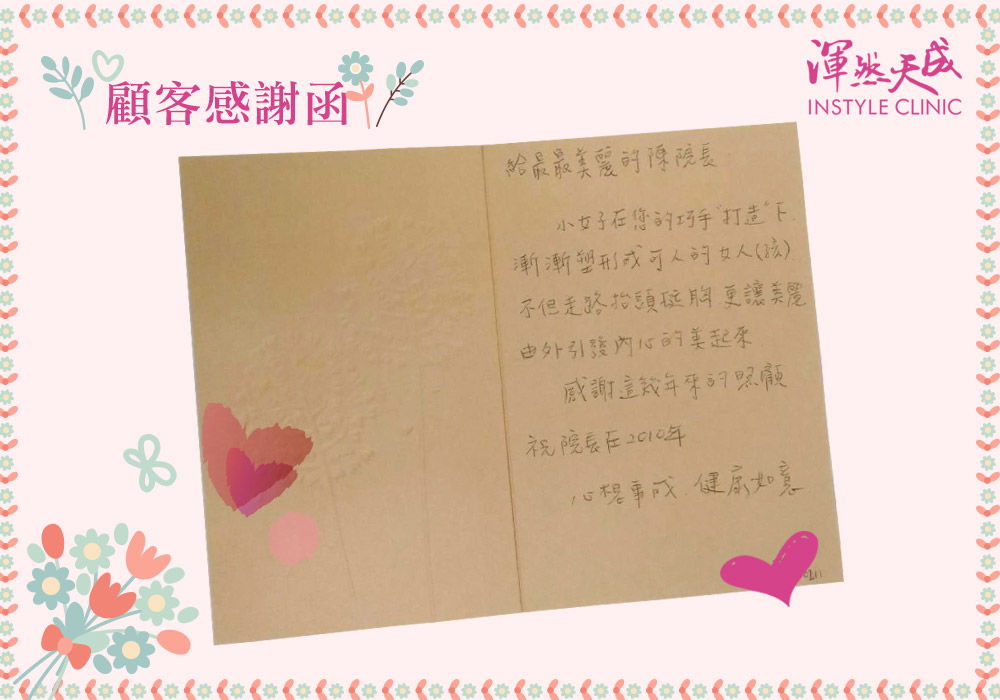 顧客感謝函
渾然天成
INSTYLE CLINIC
給最最美麗的陳院長
小女子在您的巧手"打造"下
漸漸塑形成可人的女人(孩)
不但走路抬頭挺胸 更讓美麗
由外引發內心的美起來
感謝這幾年來的照顧
祝院長在2010年
心想事成.健康如意
0211